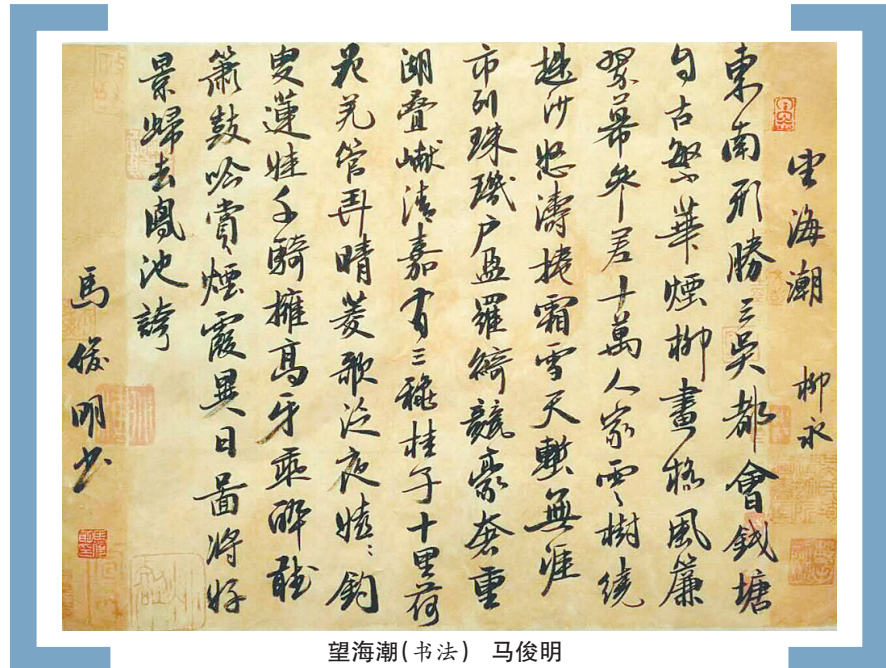 望海潮 柳永
東南形勝三吳都會錢塘
自古繁華煙柳畫橋風簾
翠幕參差十萬人家雲樹繞
堤沙怒濤捲霜雪天塹無涯
市列珠璣户盈羅綺競豪奢重
湖叠巘清嘉有三穐桂子十里荷
花羌管弄晴菱歌泛夜嬉〻釣
叟蓮娃千騎擁高牙乘醉聽
簫鼓吟賞煙霞異日圖將好
景歸去鳳池誇
馬俊明书
望海潮(书法) 马俊明